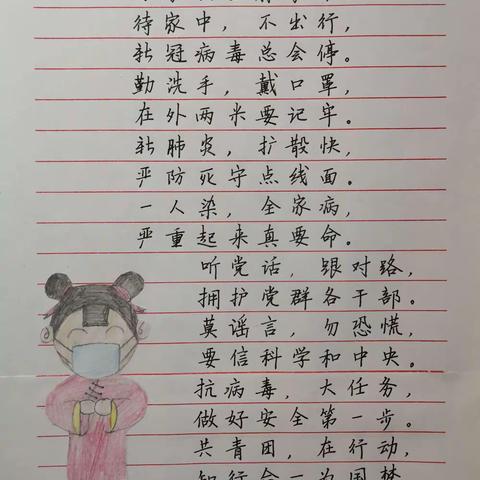 待家中，不出行，
新冠病毒总会停。
勤洗手，戴口罩，
在外两米要记牢。
新肺炎，扩散快，
严防死守点线面。
一人染，全家病，
严重起来真要命。
听党话，跟对路，
拥护党群各干部。
莫谣言，勿恐慌，
要信科学和中央。
抗病毒，大任务，
做好安全第一步。
共青团，在行动，
知行合一为国梦